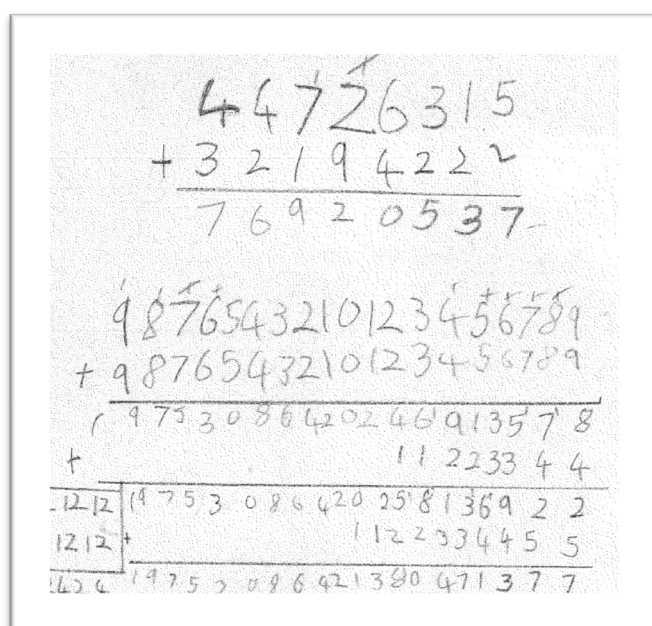 44726315
+ 32194222
76920537
98765432101234567 89
+ 9876543210123456789
19753086420246913578
+ 11223344
19753086420258136922
1212 + 1122334455
1212
2424 19753086421380471377